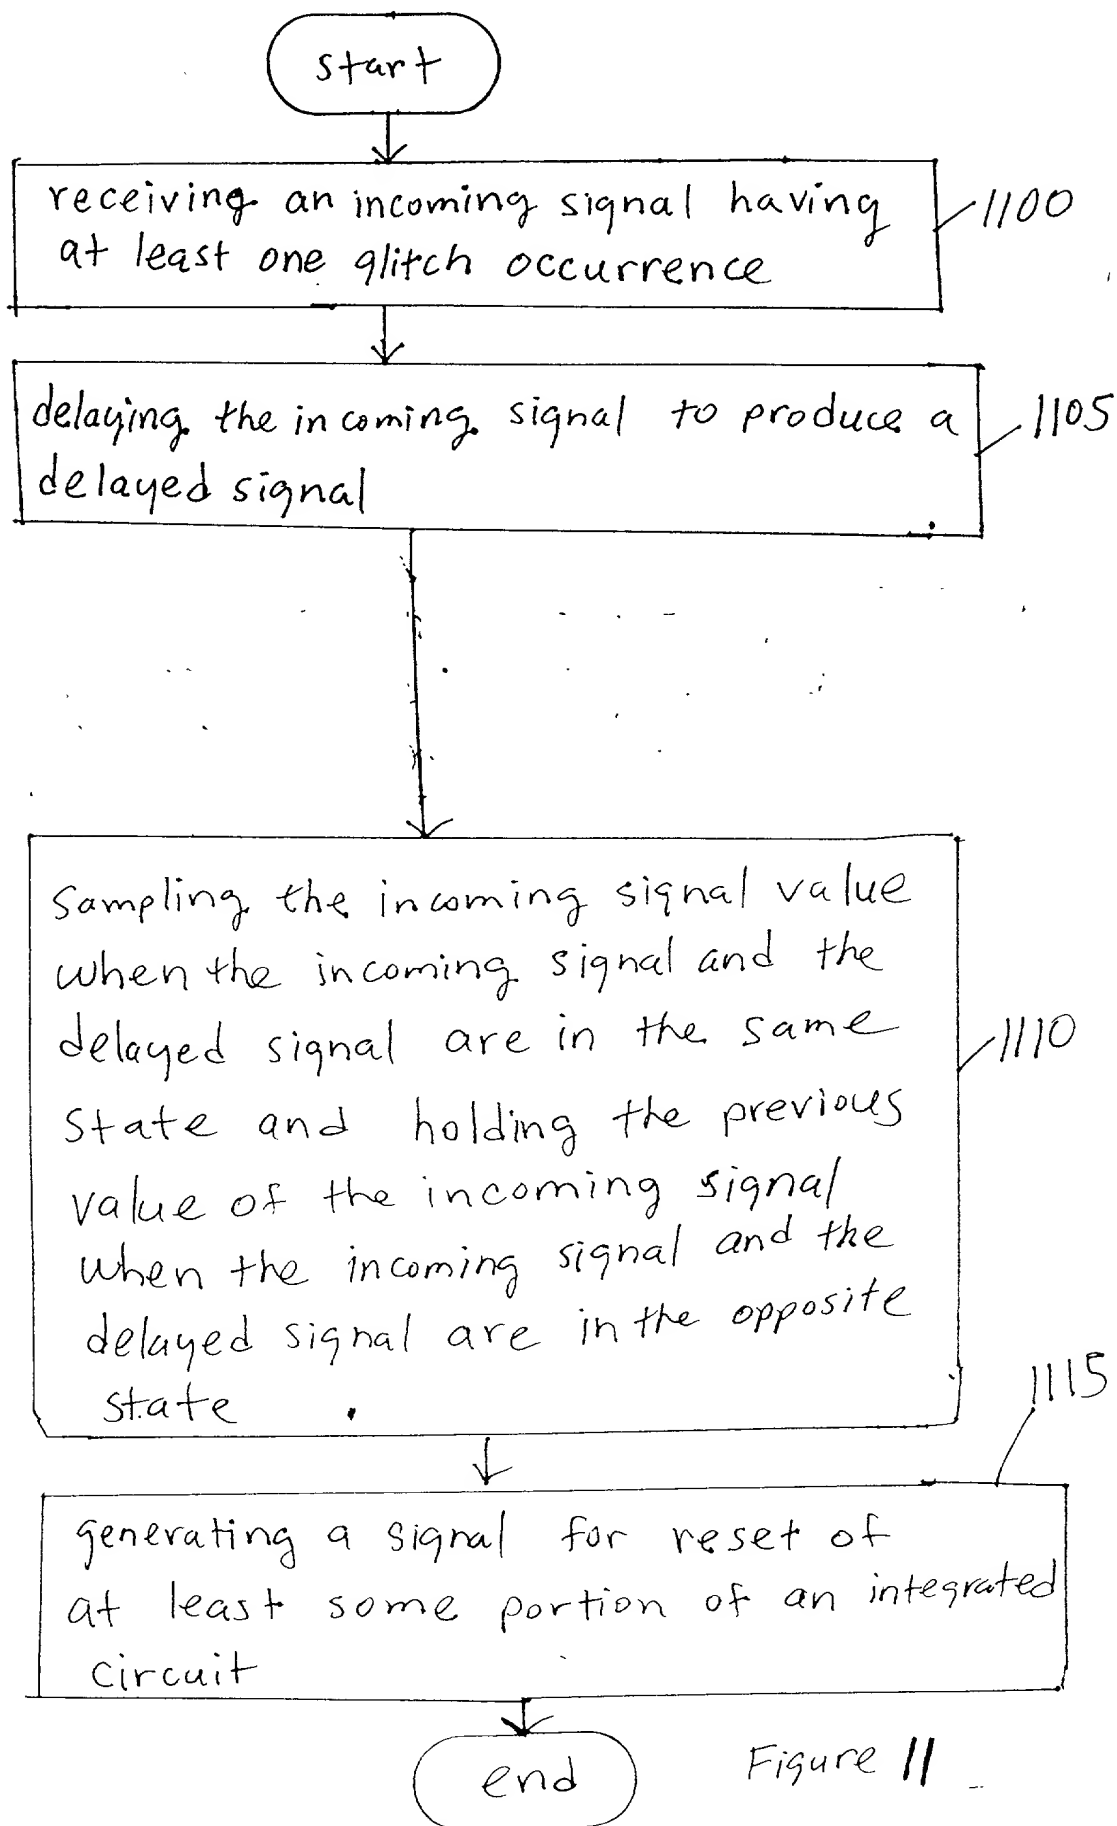 start
receiving an incoming signal having
at least one glitch occurrence
1100
delaying the incoming signal to produce a
delayed signal
1105
Sampling the incoming signal value
when the incoming signal and the
delayed signal are in the same
state and holding the previous
value of the incoming signal
when the incoming signal and the
delayed signal are in the opposite
state
1110
generating a signal for reset of
at least some portion of an integrated
circuit
1115
end
Figure 11